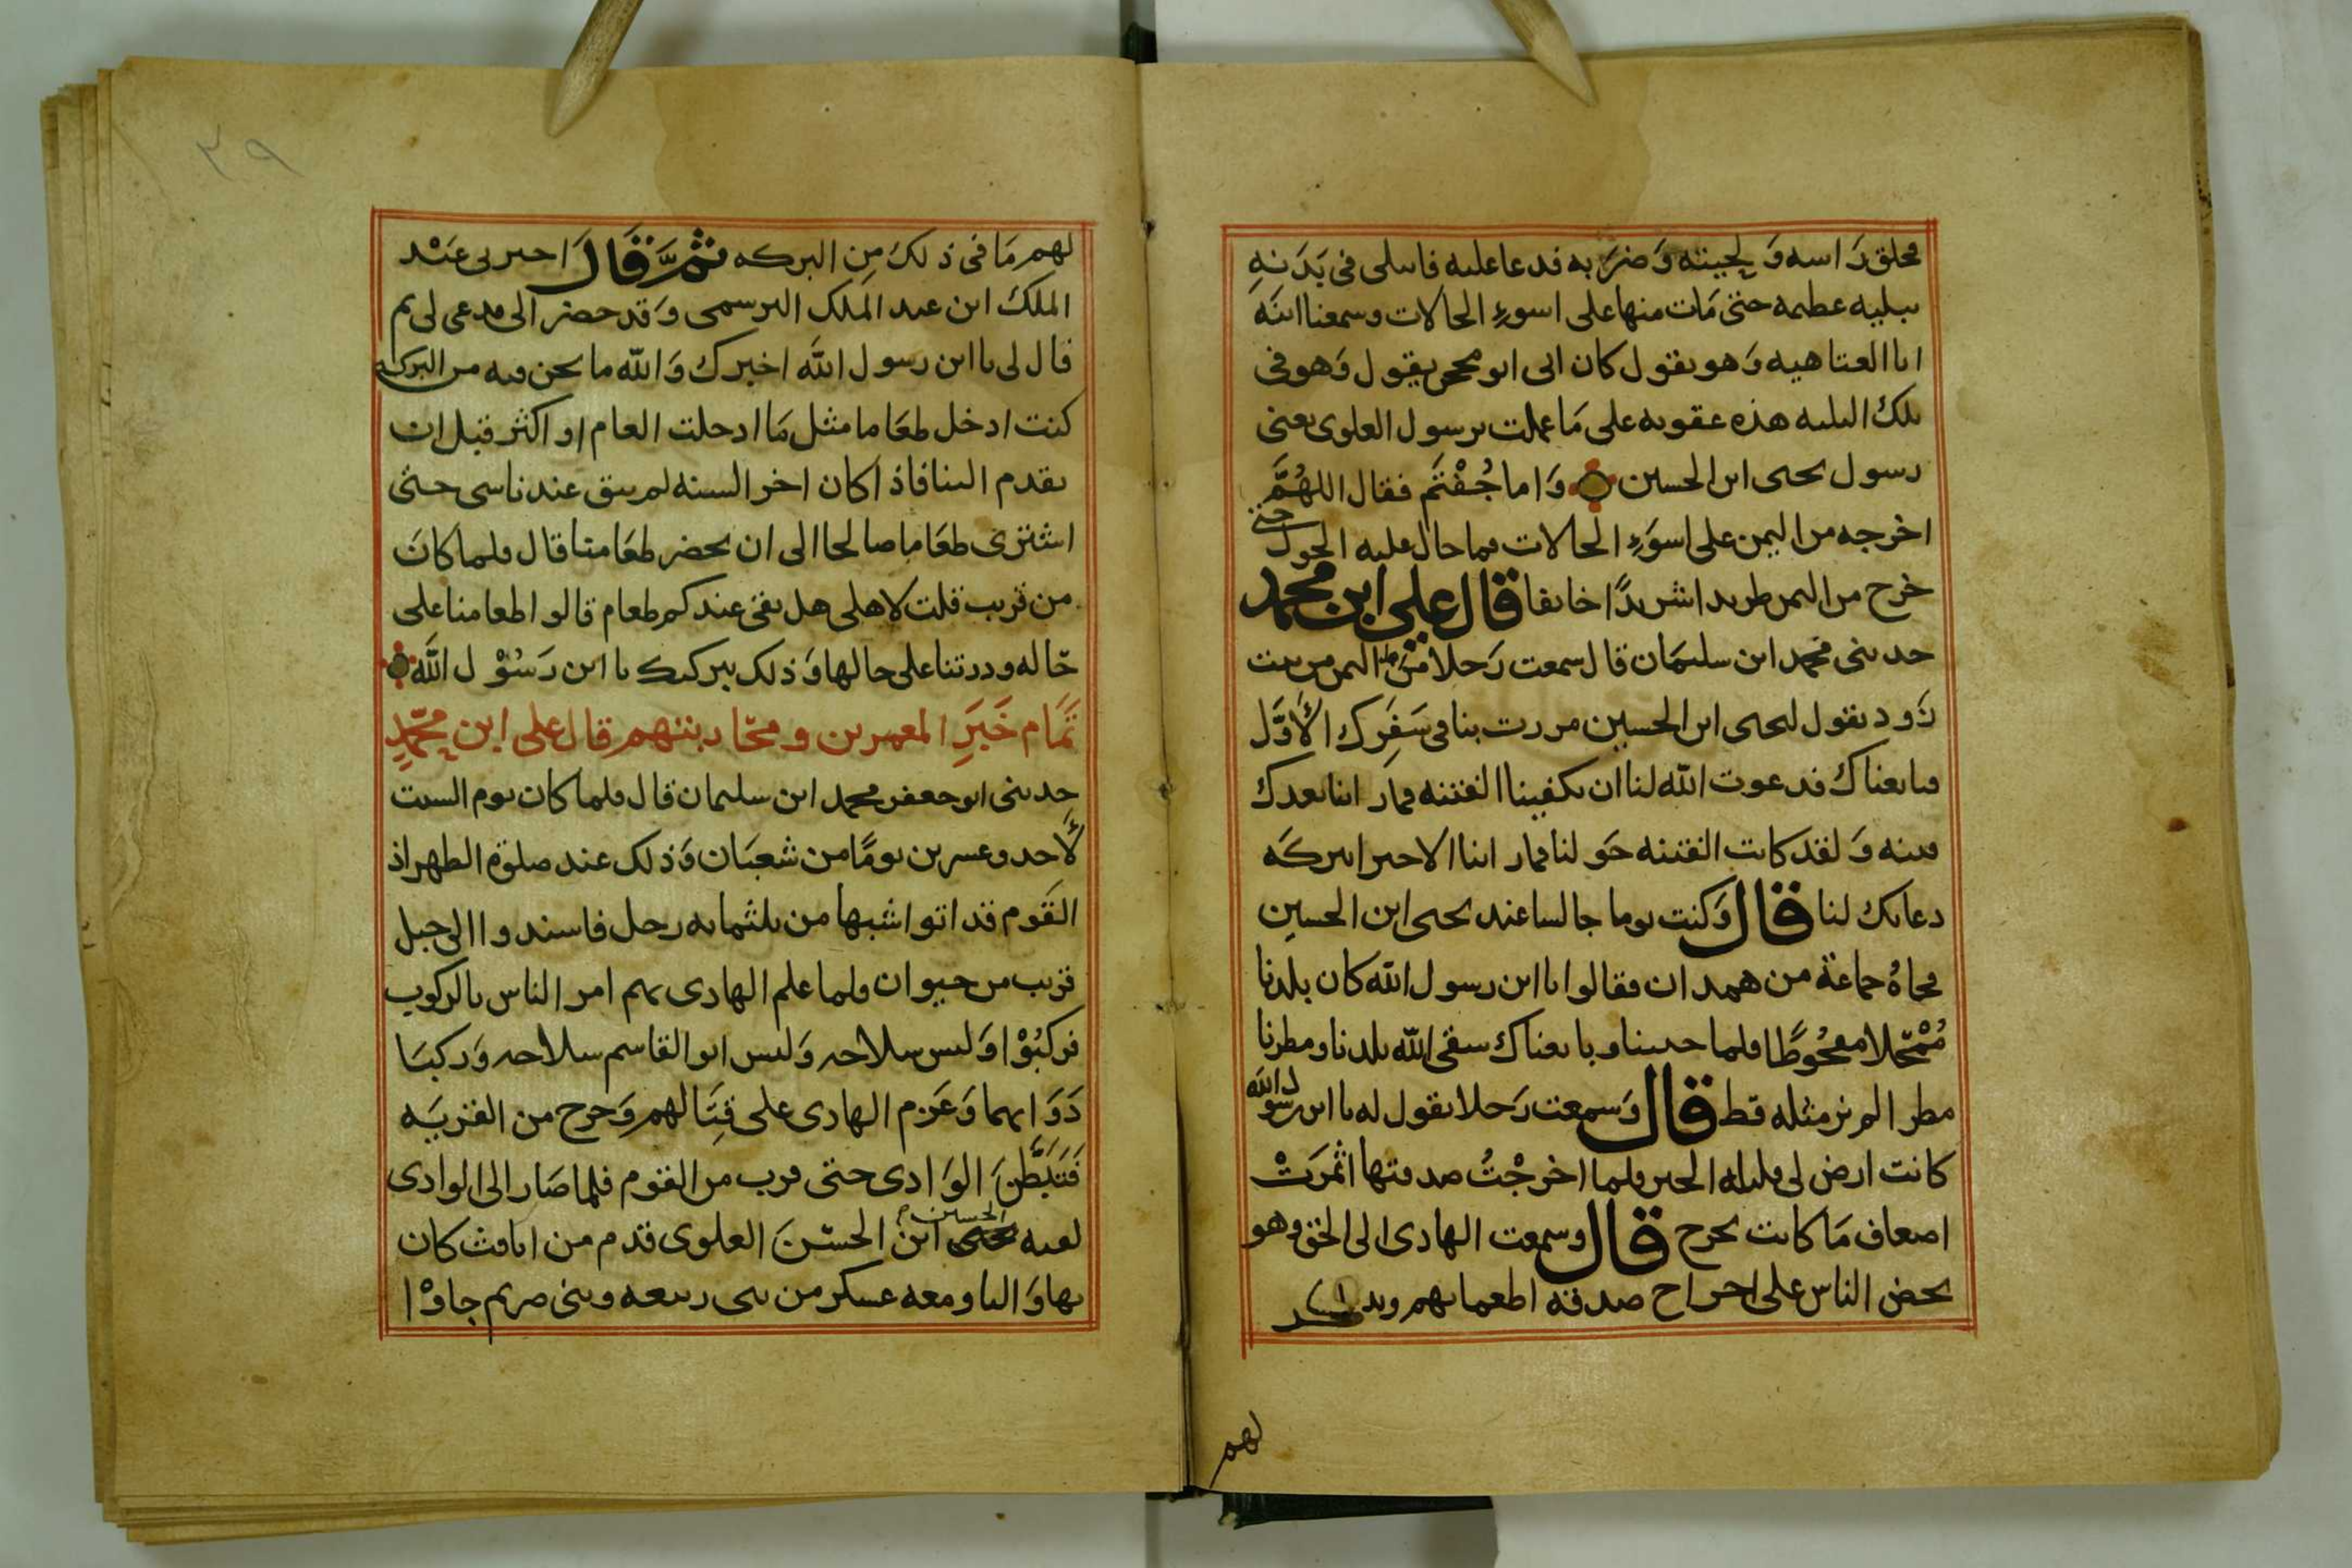 محلق راسه ولحيته وضربه فدعا عليه فابتلى في بدنه
ببليه عظيمه حتى مات منها على اسوء الحالات وسمعنا ابنه
ابا العتاهيه وهو يقول كان ابى ابو محجن يقول وهو في
تلك البليه هذه عقوبه على ما عملت برسول العلوى يعنى
رسول يحيى ابن الحسين واما جُفْتَم فقال اللهُمَّ
اخرجه من اليمن على اسوء الحالات فما حال عليه الحول حتى
خرج من اليمن طريدا شريدًا خايفا قال علي ابن محمد
حدثنى محمد ابن سليمان قال سمعت رجلا من اهل اليمن من بيت
زود يقول ليحيى ابن الحسين مررت بنا في سَفَرِك الأوَّل
فبايعناك فدعوت الله لنا ان يكفينا الفتنه فما راينا بعدك
فتنه ولقد كانت الفتنه حولنا فما راينا الا خيرا ببركه
دعايك لنا قال وكنت يوما جالسا عند يحيى ابن الحسين
فجاه جماعة من همدان فقالوا يا ابن رسول الله كان بلدنا
مُمْحلا مقحُوطًا فلما جيتنا وبايعناك سقى الله بلدنا ومطرنا
مطرا لم نر مثله قط قال وسمعت رجلا يقول له يا ابن رسول الله
كانت ارض لى قليله الخير فلما اخرجْتُ صدقتها اثمرَتْ
اضعاف ما كانت تخرج قال وسمعت الهادى الى الحق وهو
يحض الناس على اخراج صدقه اطعماتهم ويذكر
لهم
٣٩
لهم ما في ذلك من البركه ثمَّ قال اخبرنى عَبْد
الملك ابن عبد الملك البرسمى وقد حضر الى مدعى لى ثم
قال لى يا ابن رسول الله اخبرك والله ما نحن فيه من البركه
كنت ادخل طعاما مثل ما ادخلت العام او اكثر قبل ان
تقدم الينا فاذا كان اخر السنه لم يبق عندنا شى حتى
اشترى طعاما صالحا الى ان يحضر طعامنا قال فلما كان
من قريب قلت لاهلى هل بقى عندكم طعام قالوا طعامنا على
حاله وذرتنا على حالها وذلك ببركتك يا ابن رَسُوْل الله
تَمَام خَبَرِ المعمرين ومحاربتهم قال على ابن محمّدٍ
حدثنى ابو جعفر محمد ابن سليمان قال فلما كان يوم السبت
لأحد وعشرين يومًا من شعبان وذلك عند صلوة الظهر اذ
القوم قد اتوا شبها من ثلثمايه رجل فاسندوا الى جبل
قريب من خيوان فلما علم الهادى بهم امر الناس بالركوب
فركبُوْا ولبس سلاحه ولبس ابو القاسم سلاحه وركبَا
دَوَابهما وعَزم الهادى على قِتَالهم وخرج من القريَه
فَتَبَطَّنَ الوَادى حتى قرب من القوم فلما صار الى الوادى
لقيه يحيى الحسين ابن الحسَن العلوى قدم من اثافث كان
بها واليا ومعه عسكر من بنى ربيعه وبنى صريم جاوْا